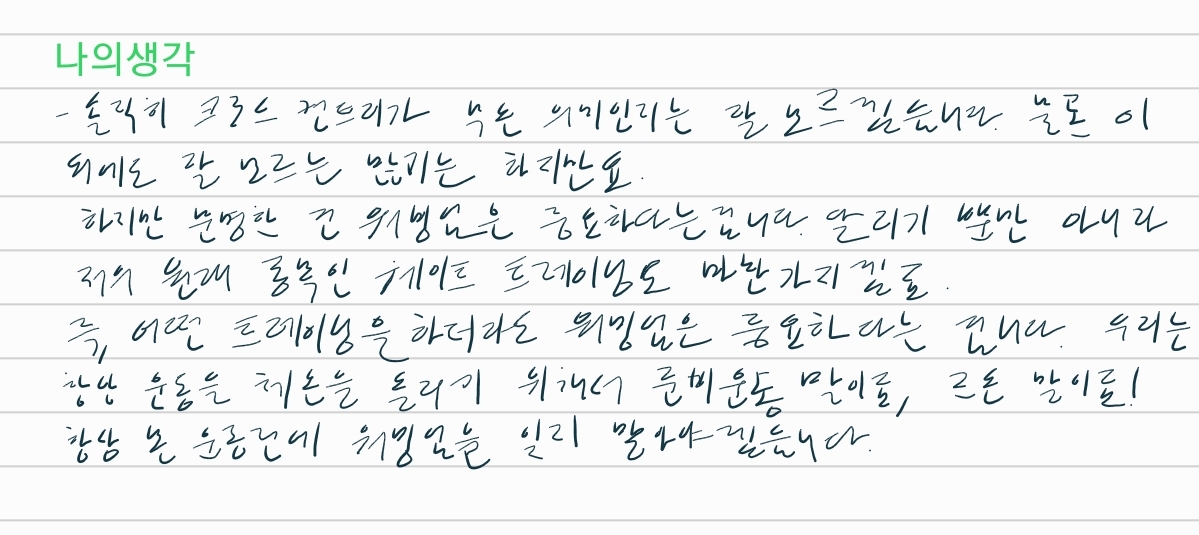 나의생각
- 솔직히 크로스 컨트리가 무슨 의미인지는 잘 모르겠습니다. 물론 이
외에도 잘 모르는 많기는 하지만요.
하지만 분명한 건 워밍업은 중요하다는겁니다. 달리기 뿐만 아니라
저의 원래 종목인 웨이트 트레이닝도 마찬가지겠죠.
즉, 어떤 트레이닝을 하더라도 워밍업은 중요하다는 겁니다. 우리는
항상 운동을 체온을 올리기 위해서 준비운동 말이죠, 모든 말이죠!
항상 본 운동전에 워밍업을 잊지 말아야겠습니다.